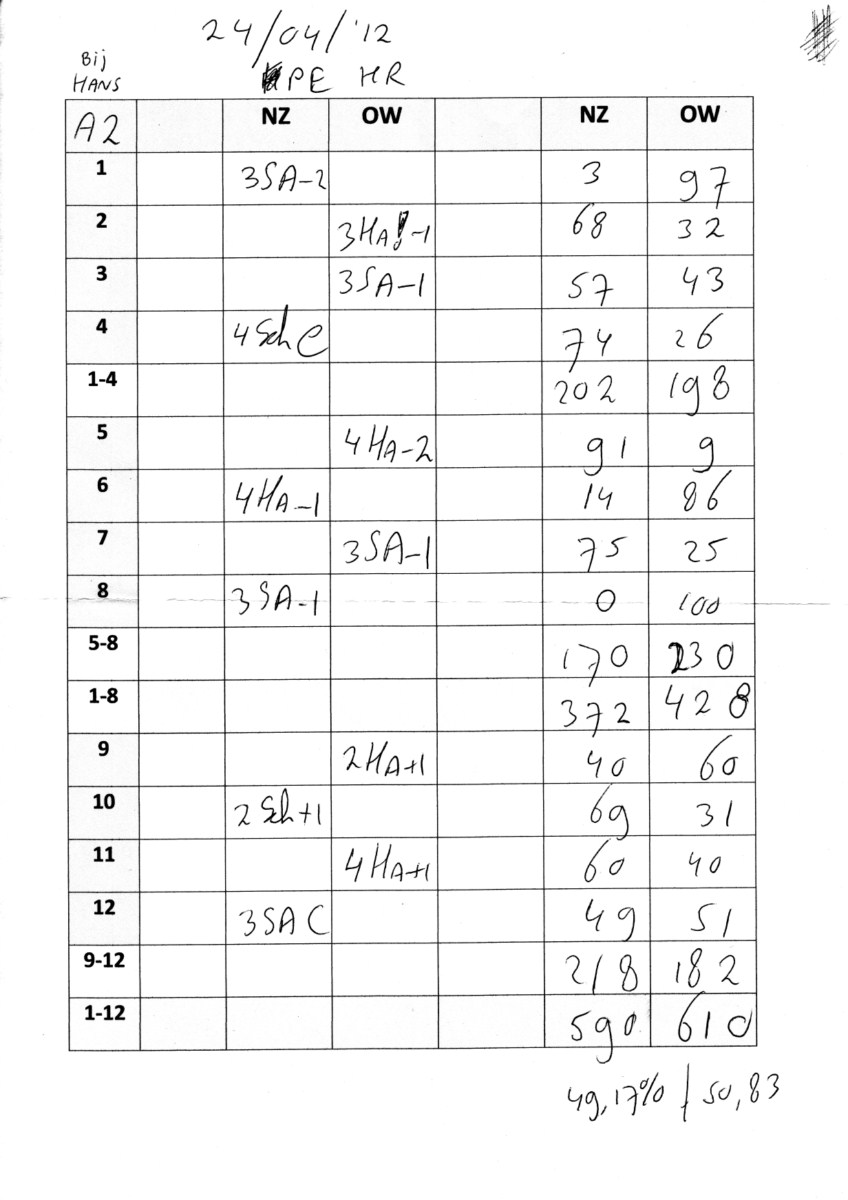 24/04/'12
Bij
HANS
PE HR
A2 NZ OW NZ OW
1 3SA-2 3 97
2 3HA!-1 68 32
3 3SA-1 57 43
4 4Sch C 74 26
1-4 202 198
5 4HA-2 91 9
6 4HA-1 14 86
7 3SA-1 75 25
8 3SA-1 0 100
5-8 170 230
1-8 372 428
9 2HA+1 40 60
10 2Sch+1 69 31
11 4HA+1 60 40
12 3SA C 49 51
9-12 218 182
1-12 590 610
49,17% / 50,83